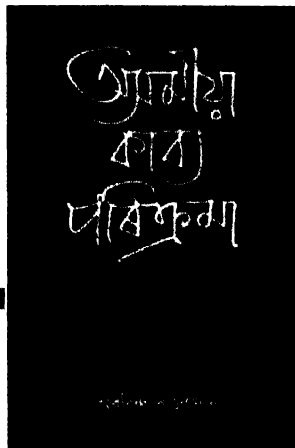 অসমীয়া
কাব্য
পৰিক্ৰমা